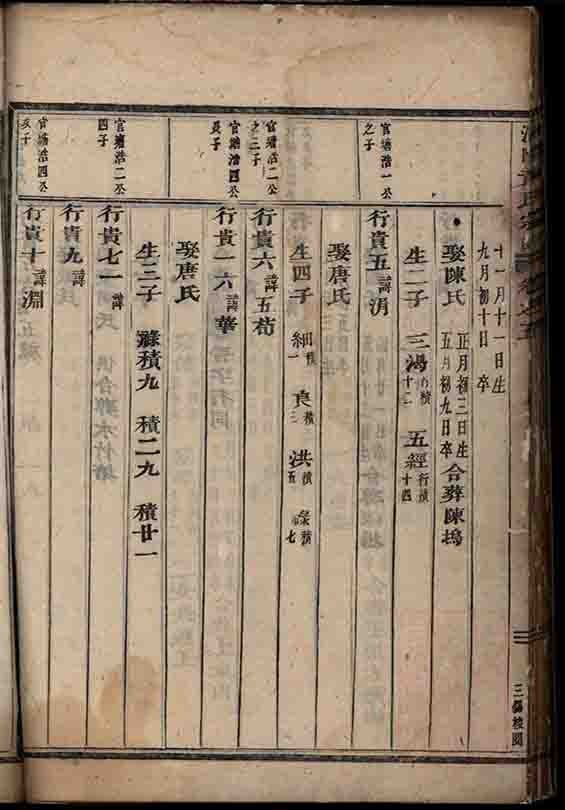 十一月十一日生
九月初十日卒
娶陳氏 正月初三日生 五月初九日卒 合葬陳塢
生二子 三 十二 五經 行積 十四
官塘浩一公之子
行貴五 諱 涓
娶唐氏
生四子 細 積一 良 積三 洪 積五 積七
官塘浩二公之二子
行貴六 諱 五苟
官塘浩四公長子
行貴一六 諱 華
娶唐氏
生三子 滌積九 積二九 積廿一
官塘浩二公四子
行貴七一 諱
行貴九 諱
官塘浩四公次子
行貴十 諱 淵